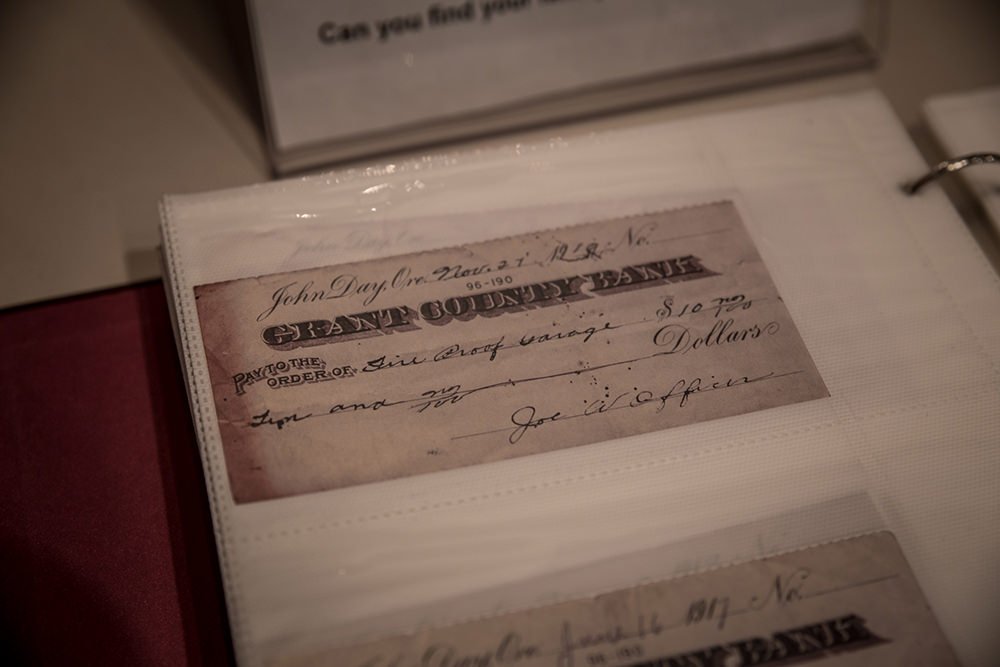 Can you find your
John Day, Ore. Nov. 21 1918 No.
96-190
GRANT COUNTY BANK
PAY TO THE
ORDER OF Fire Proof Garage $10 no/100
Ten and no/100 Dollars
Joe W Officer
Day Ore June 16 1917 No.
96-190
BANK